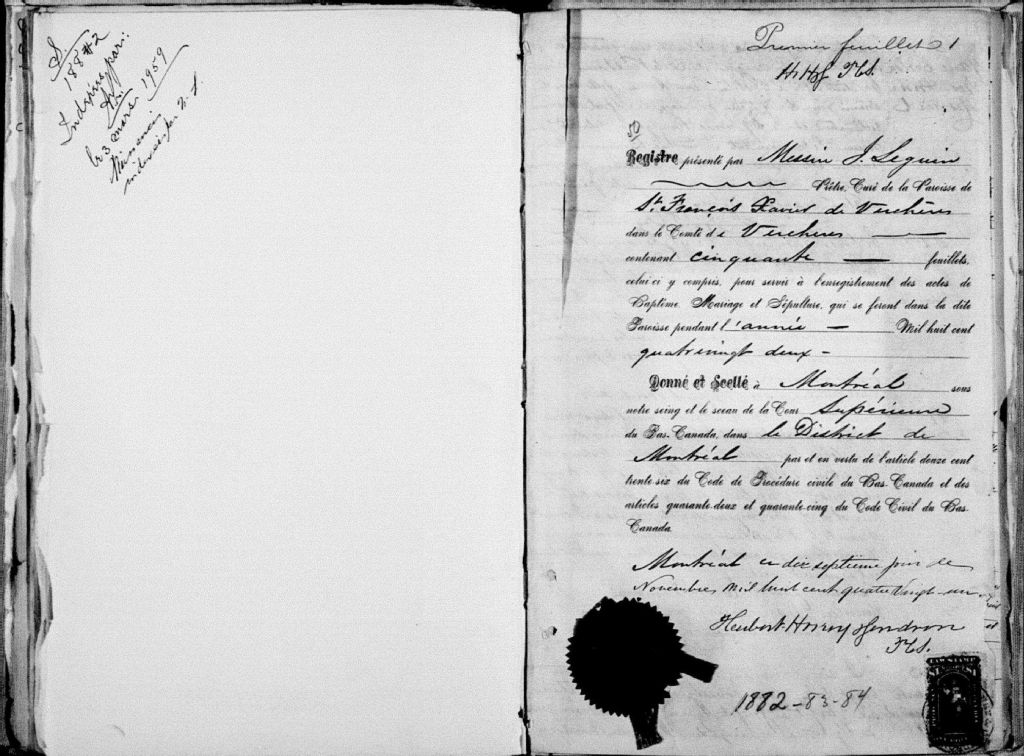 S.
188#2
par:
le 3 mars 1959
Premier feuillet 1
HHG PCS.
50
Registre présenté par Messire J. Séguin
Prêtre, Curé de la Paroisse de
St. François Xavier de Verchères
dans le Comté de Verchères
contenant cinquante feuillets,
celui-ci y compris, pour servir à l'enregistrement des actes de
Baptême, Mariage et Sépulture, qui se feront dans la dite
Paroisse pendant l'année Mil huit cent
quatrevingt deux -
Donné et Scellé à Montréal sous
notre seing et le sceau de la Cour Supérieure
du Bas-Canada, dans le District de
Montréal par et en vertu de l'article douze cent
trente-six du Code de Procédure civile du Bas-Canada et des
articles quarante-deux et quarante-cinq du Code Civil du Bas-
Canada.
Montréal ce dix septieme jour de
Novembre mil huit cent quatre vingt-un
PCS.
1882-83-84
LAW STAMP